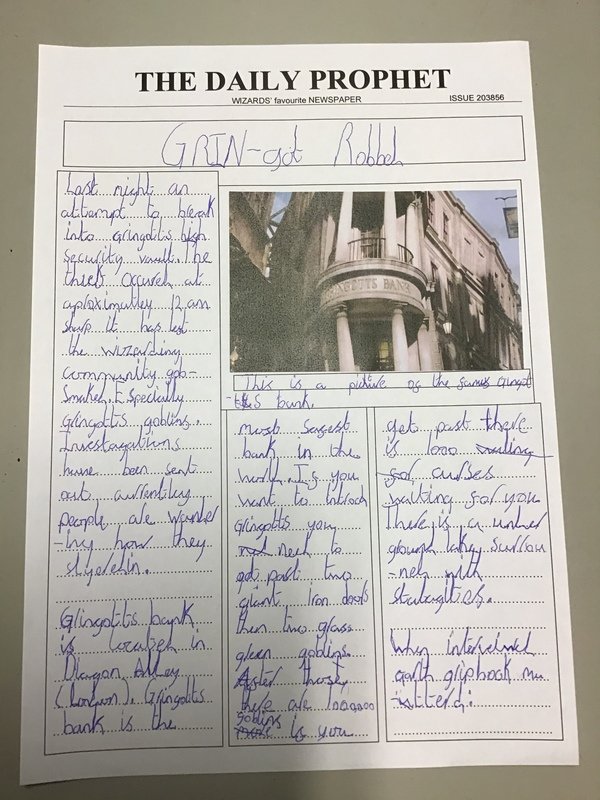 THE DAILY PROPHET
WIZARDS' favourite NEWSPAPER
ISSUE 203856
GRIN-got Robbed
Last night an
attempt to break
into gringotts high
security vault. The
theft occured at
aproximatley 12 am
sharp it has left
the wizarding
community gob-
smaked. Especially
Gringotts goblins.
Investagations
have been sent
out currentley
people are wonder
-ing how they
slyered in.
Gringotts bank
is located in
Diagon Alley
(London). Gringotts
bank is the
GRINGOTTS BANK
This is a picture of the famus Gringot
-ts bank.
most safest
bank in the
world. If you
want to introd
gringotts you
need to
get past two
giant Iron doors
then two grass
green goblins.
After those
there are 100,000
goblins
if you
get past there
is 1000 waiting
for curses
waiting for you
there is a under
ground lakey surrou
-ned with
stalagtites.
When interviewed
griphook mu
-tterd: